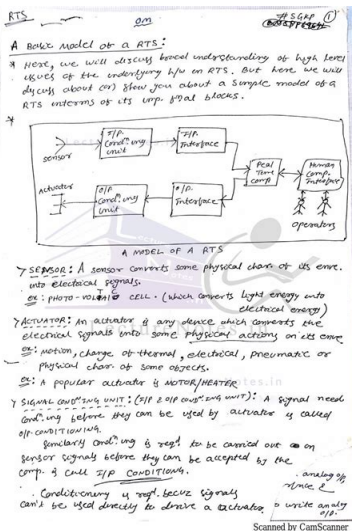 RTS
om
#SGRP
1
A Basic Model of a RTS:
* Here, we will discuss broad understanding of high level
issues of the underlying h/w on RTS. But here we will
discuss about (or) show you about a simple model of a
RTS interms of its imp. final blocks.
*
sensor
I/P.
Condn.ing
unit
I/P.
Interface
Real
Time
Comp
Human
Comp.
Interface
operators
Actuator
O/P
Condn.ing
unit
O/P.
Interface
A MODEL OF A RTS
SENSOR: A sensor converts some physical char. of its envr.
into electrical signals.
ex: PHOTO-VOLTAIC CELL. (which converts light energy into
electrical energy)
ACTUATOR: An actuator is any device which converts the
electrical signals into some physical actions on its envr
ex: motion, change of thermal, electrical, pneumatic or
physical char. of some objects.
ex: A popular actuator is MOTOR/HEATER
SIGNAL CONDn.ING UNIT: (I/P & O/P CONDn.ING UNIT): A signal need
Condn.ing before they can be used by actuator is called
O/P-CONDITIONING.
Similarly condn.ing is reqd. to be carried out on
sensor signals before they can be accepted by the
comp. is call I/P CONDITIONG.
. Conditionery is reqd. becuz signals
can't be used directly to derive a actuator
analog o/p.
to write analog
o/p.
Scanned by CamScanner